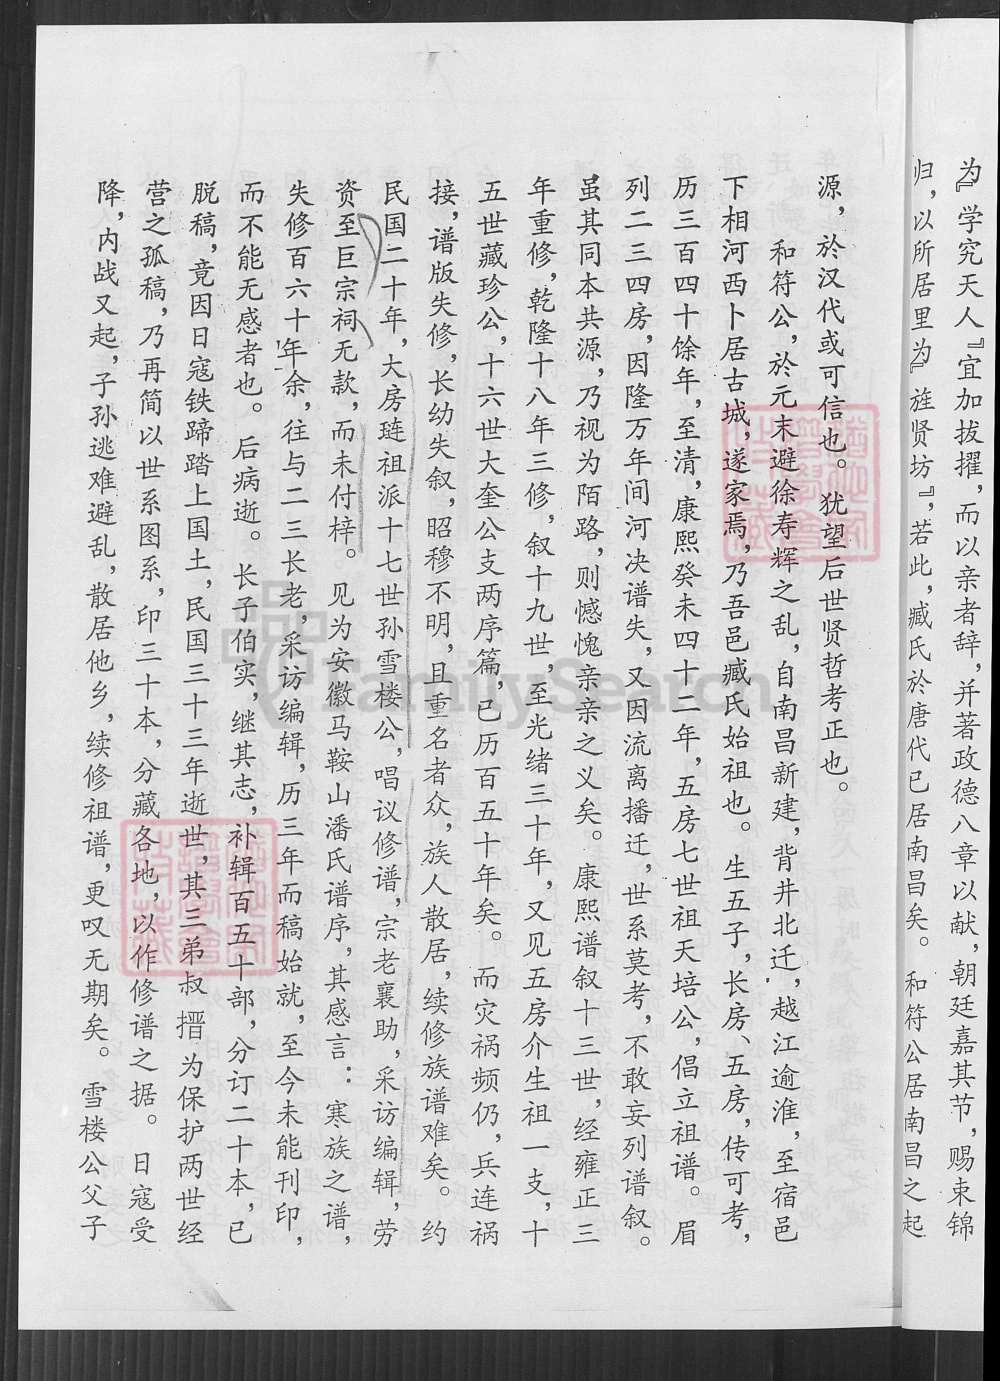 为』学究天人『宜加拔擢，而以亲者辞，并著政德八章以献，朝廷嘉其节，赐束锦
归，以所居里为』旌贤坊』，若此，臧氏於唐代已居南昌矣。 和符公居南昌之起
源，於汉代或可信也。 犹望后世贤哲考正也。
和符公，於元末避徐寿辉之乱，自南昌新建，背井北迁，越江逾淮，至宿邑
下相河西卜居古城，遂家焉，乃吾邑臧氏始祖也。 生五子，长房、五房，传可考，
历三百四十馀年，至清，康熙癸未四十二年，五房七世祖天培公，倡立祖谱。 眉
列二三四房，因隆万年间河决谱失，又因流离播迁，世系莫考，不敢妄列谱叙。
虽其同本共源，乃视为陌路，则憾愧亲亲之义矣。 康熙谱叙十三世，经雍正三
年重修，乾隆十八年三修，叙十九世，至光绪三十年，又见五房介生祖一支，十
五世藏珍公，十六世大奎公支两序篇，已历百五十年矣。 而灾祸频仍，兵连祸
接，谱版失修，长幼失叙，昭穆不明，且重名者众，族人散居，续修族谱难矣。 约
民国二十年，大房琏祖派十七世孙雪楼公，唱议修谱，宗老襄助，采访编辑，劳
资至巨宗祠无款，而未付梓。 见为安徽马鞍山潘氏谱序，其感言：寒族之谱，
失修百六十年余，往与二三长老，采访编辑，历三年而稿始就，至今未能刊印，
而不能无感者也。 后病逝。 长子伯实，继其志，补辑百五十部，分订二十本，已
脱稿，竟因日寇铁蹄踏上国土，民国三十三年逝世，其三弟叔搢为保护两世经
营之孤稿，乃再简以世系图系，印三十本，分藏各地，以作修谱之据。 日寇受
降，内战又起，子孙逃难避乱，散居他乡，续修祖谱，更叹无期矣。 雪楼公父子
FamilySearch